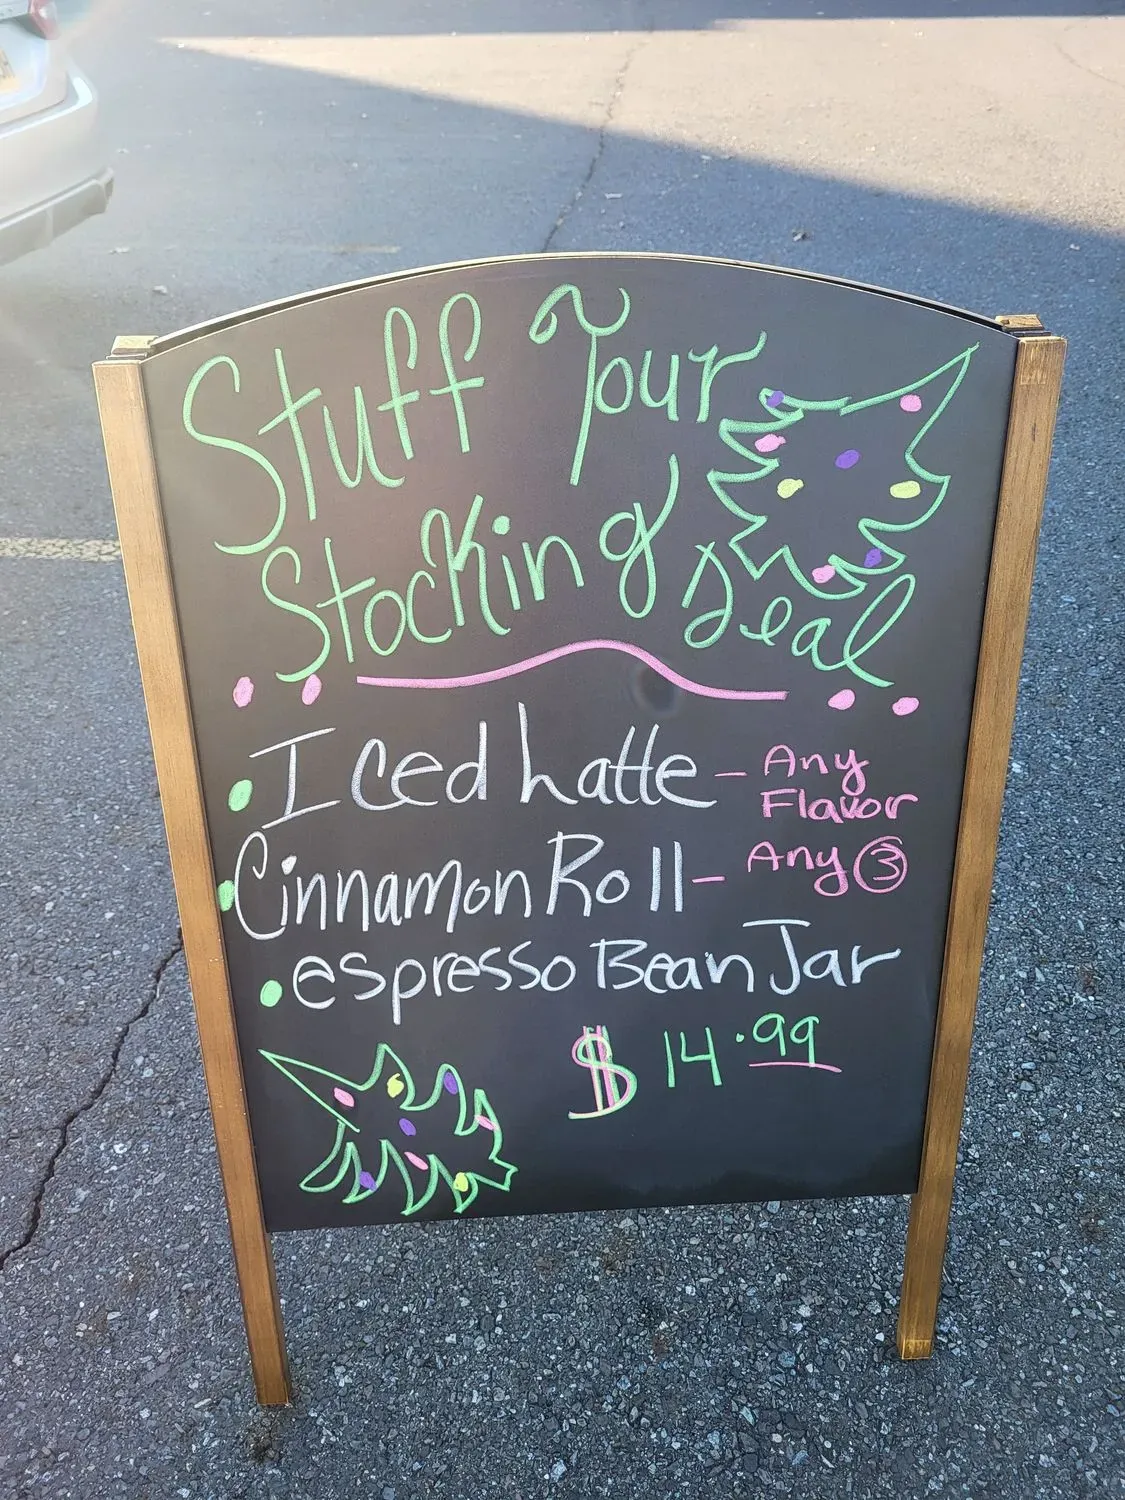 Stuff Your
Stocking Deal
• Iced Latte - Any
Flavor
• Cinnamon Roll - Any ③
• espresso Bean Jar
$ 14.99